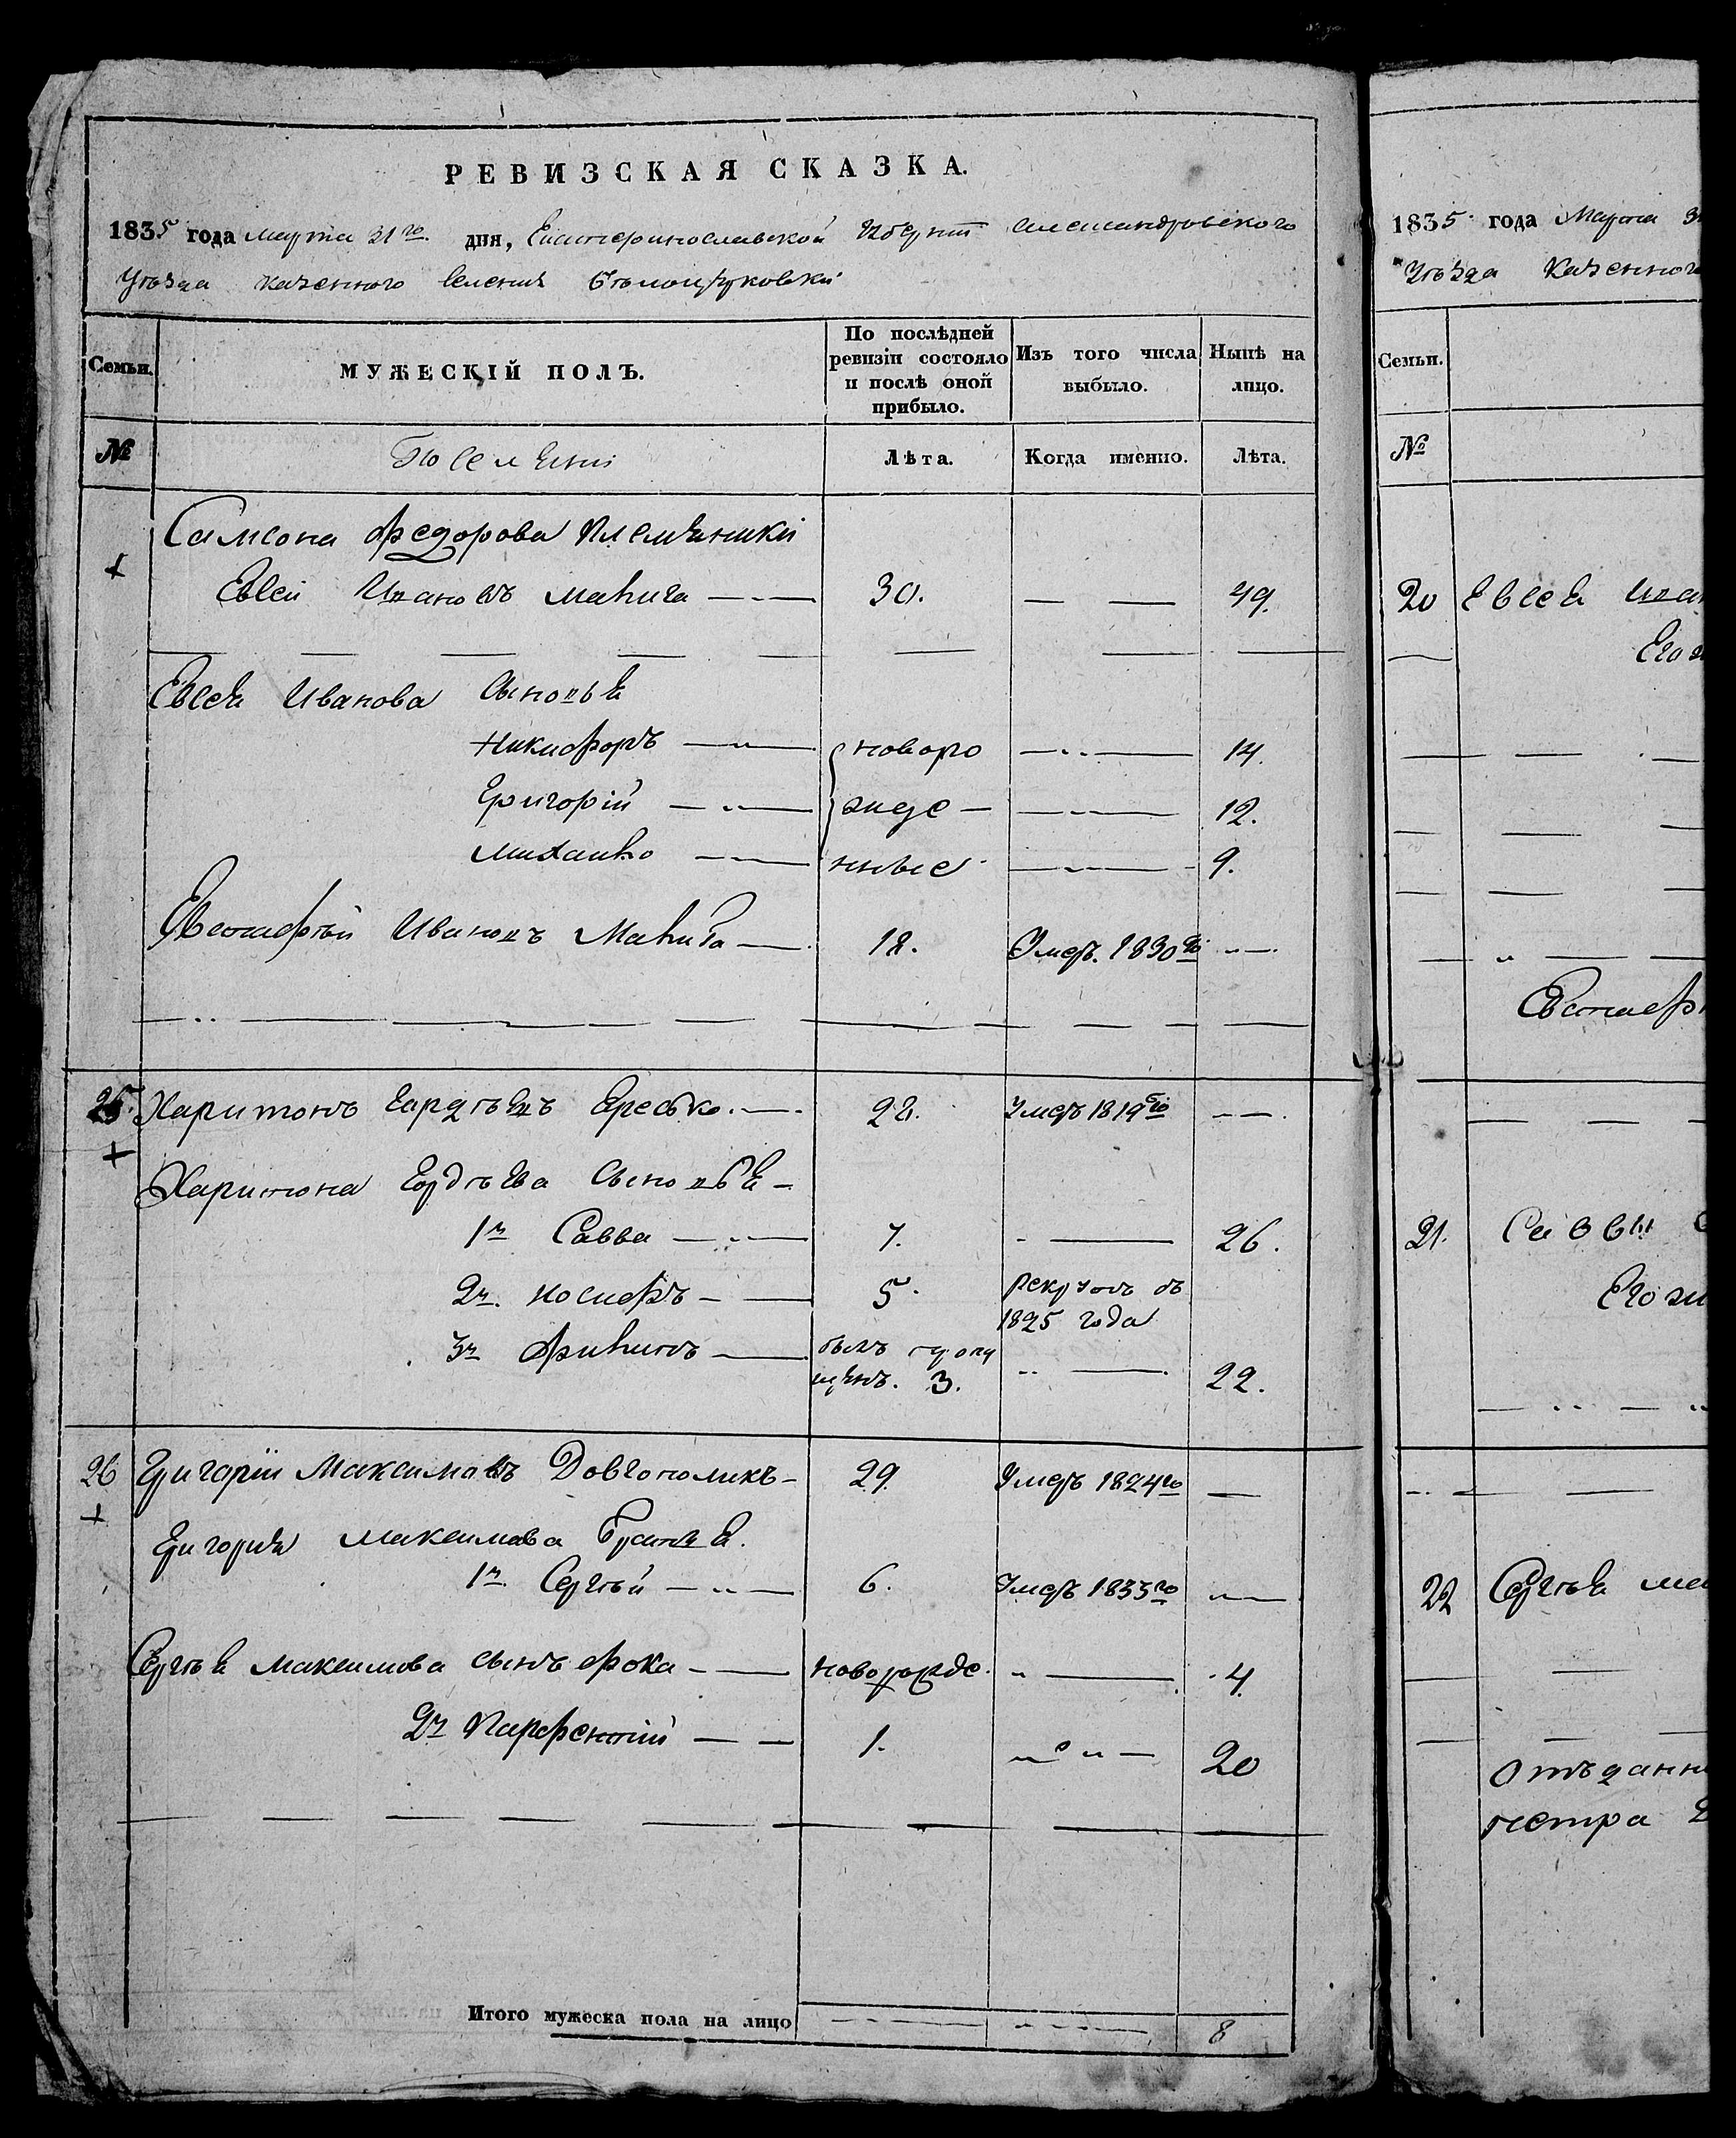 РЕВИЗСКАЯ СКАЗКА.
1835 года марта 31го дня, Екатеринославской Губерніи Александровского
Уѣзда казенного Селенія Бѣлоцерковки
Семьи.
МУЖЕСКІЙ ПОЛЪ.
По послѣдней ревизіи состояло и послѣ оной прибыло.
Изъ того числа выбыло.
Нынѣ на лицо.
№
Поселяни
Лѣта.
Когда именно.
Лѣта.
Самсона Федорова племянники
+
Евсей Ивановъ 30. — — 49.
Евсея Ивановa Сыновья
Никифоръ — новоро — 14.
Григорій — жде — 12.
Михайло — нные — 9.
Евстафѣй Ивановъ — 12. Умеръ. 1830го —
25. Харитонъ Гордѣевъ Ересько. — 22. Умеръ 1819го —
+
Харитона Гордѣева Сыновья —
1й Савва — 7. — 26.
2й. Иосифъ — 5. рекрутъ въ
1825 года
3й Филипъ — былъ пропу
щенъ. 3. — 22.
26 Григорій Максимовъ Довгополикъ — 29. Умеръ 1824го —
+
Григория Максимова Братья.
1й. Сергѣй — 6. Умеръ 1833го —
Сергѣя Максимова сынъ Фока — новорожде. — 4.
2й Парфентій — 1. — 20
Итого мужеска пола на лицо — — 8
1835 года Марта 3
Уѣзда Казенного
Семьи.
№
20 Евсея Иван
Его ж
Евстаф
21. Саввы
Его ж
22 Сергѣя ма
отъданн
сестра